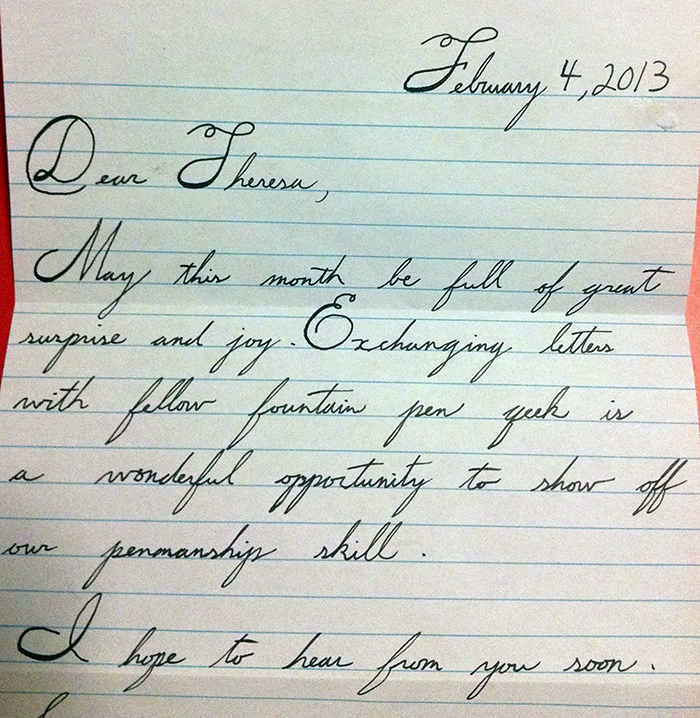 February 4, 2013
Dear Theresa,
May this month be full of great
surprise and joy. Exchanging letters
with fellow fountain pen geek is
a wonderful opportunity to show off
our penmanship skill.
I hope to hear from you soon.